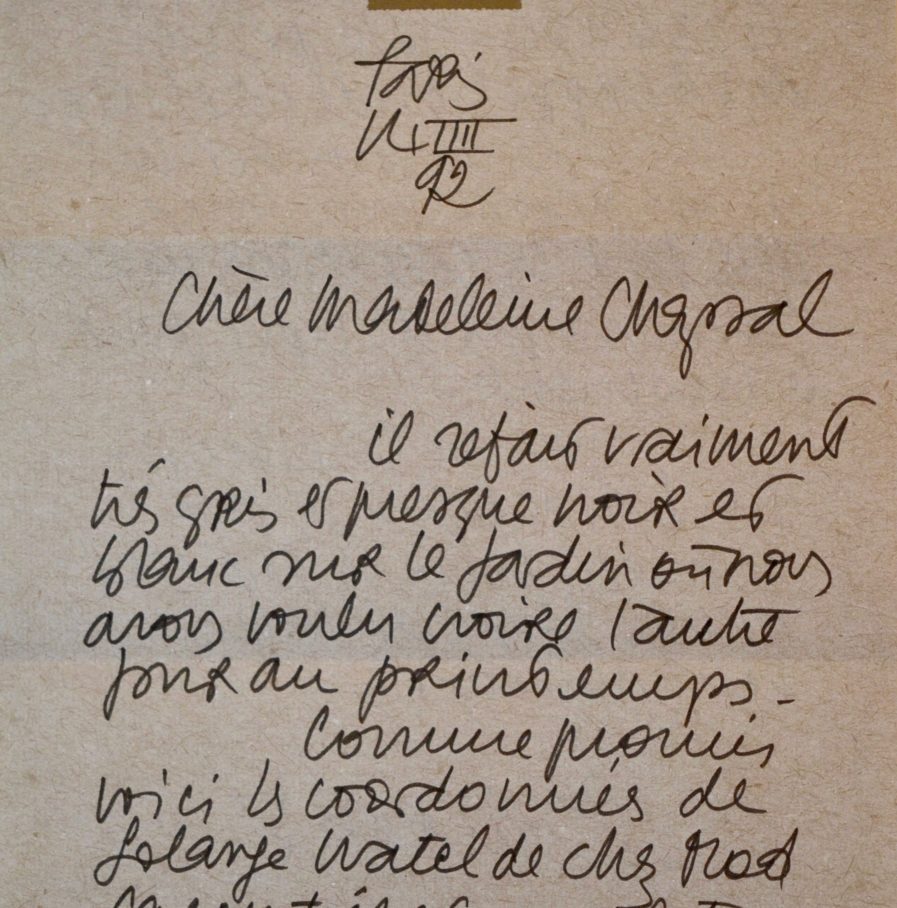 92
Chère Madeleine Chapsal
il refait vraiment
très gris et presque noir et
blanc sur le jardin où nous
avons voulu croire l'autre
jour au printemps -
Comme promis
voici les coordonnées de
Solange Watel de chez